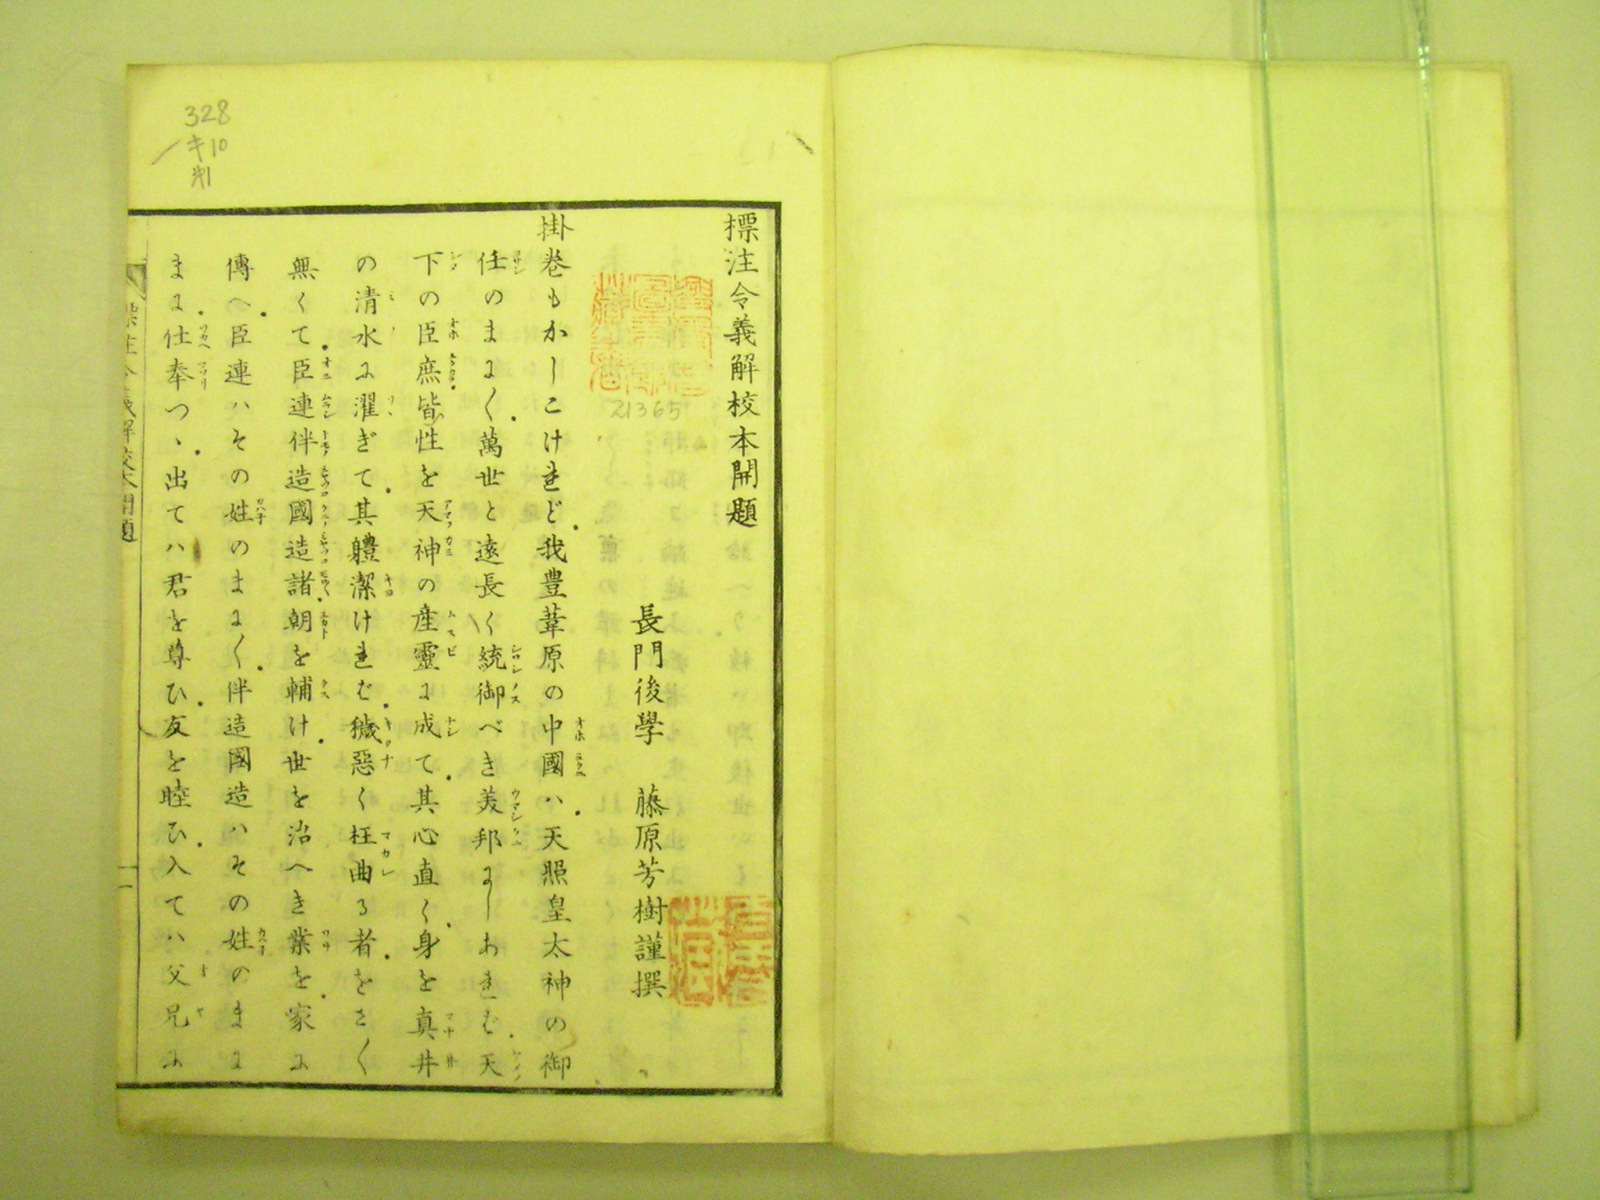 標注令義解校本開題
長門後學 藤原芳樹謹撰
掛巻もかしこけれど我豊葦原の中國ハ天照皇太神の御
任のまに〱萬世と遠長く統御べき美邦にしあれば天
下の臣庶皆性を天神の産靈に成て其心直く身を真井
の清水に濯ぎて其軆潔ければ穢惡く枉曲る者をさ〱
無くて臣連伴造國造諸朝を輔け世を治へき業を家に
傳へ臣連ハその姓のまに〱伴造國造ハその姓のまに
まに仕奉つゝ出てハ君を尊ひ友を睦ひ入てハ父兄に
標注令義解校本開題
一
21365
328
キ10